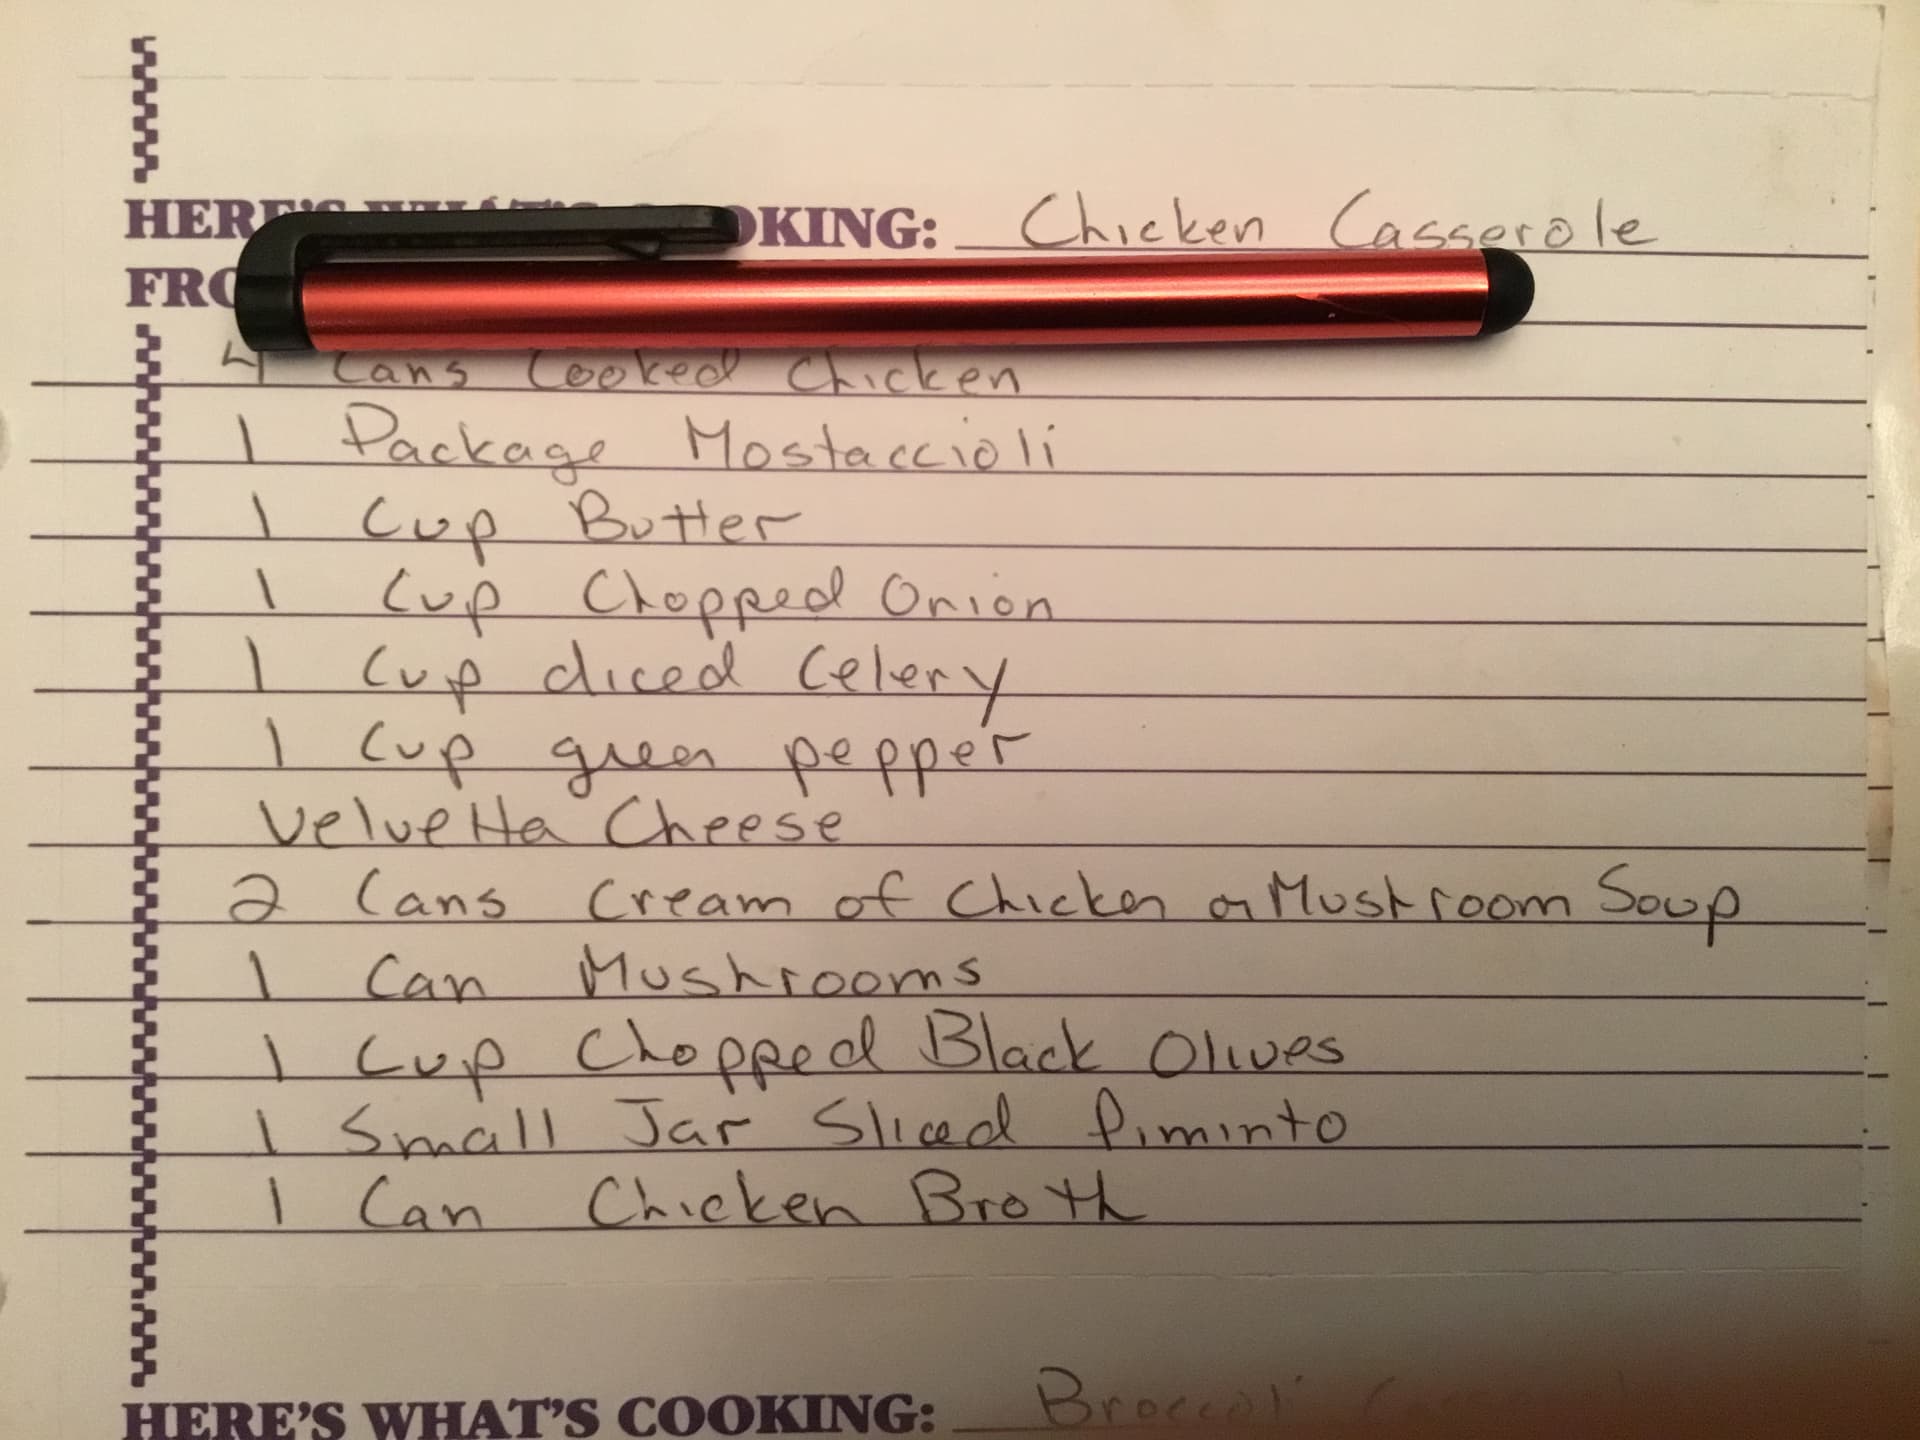 HERE'S WHAT'S COOKING: Chicken Casserole
4 Cans Cooked Chicken
1 Package Mostaccioli
1 Cup Butter
1 Cup Chopped Onion
1 Cup diced Celery
1 Cup green pepper
Velvetta Cheese
2 Cans Cream of Chicken or Mushroom Soup
1 Can Mushrooms
1 Cup Chopped Black Olives
1 Small Jar Sliced Piminto
1 Can Chicken Broth
HERE'S WHAT'S COOKING: Broccoli